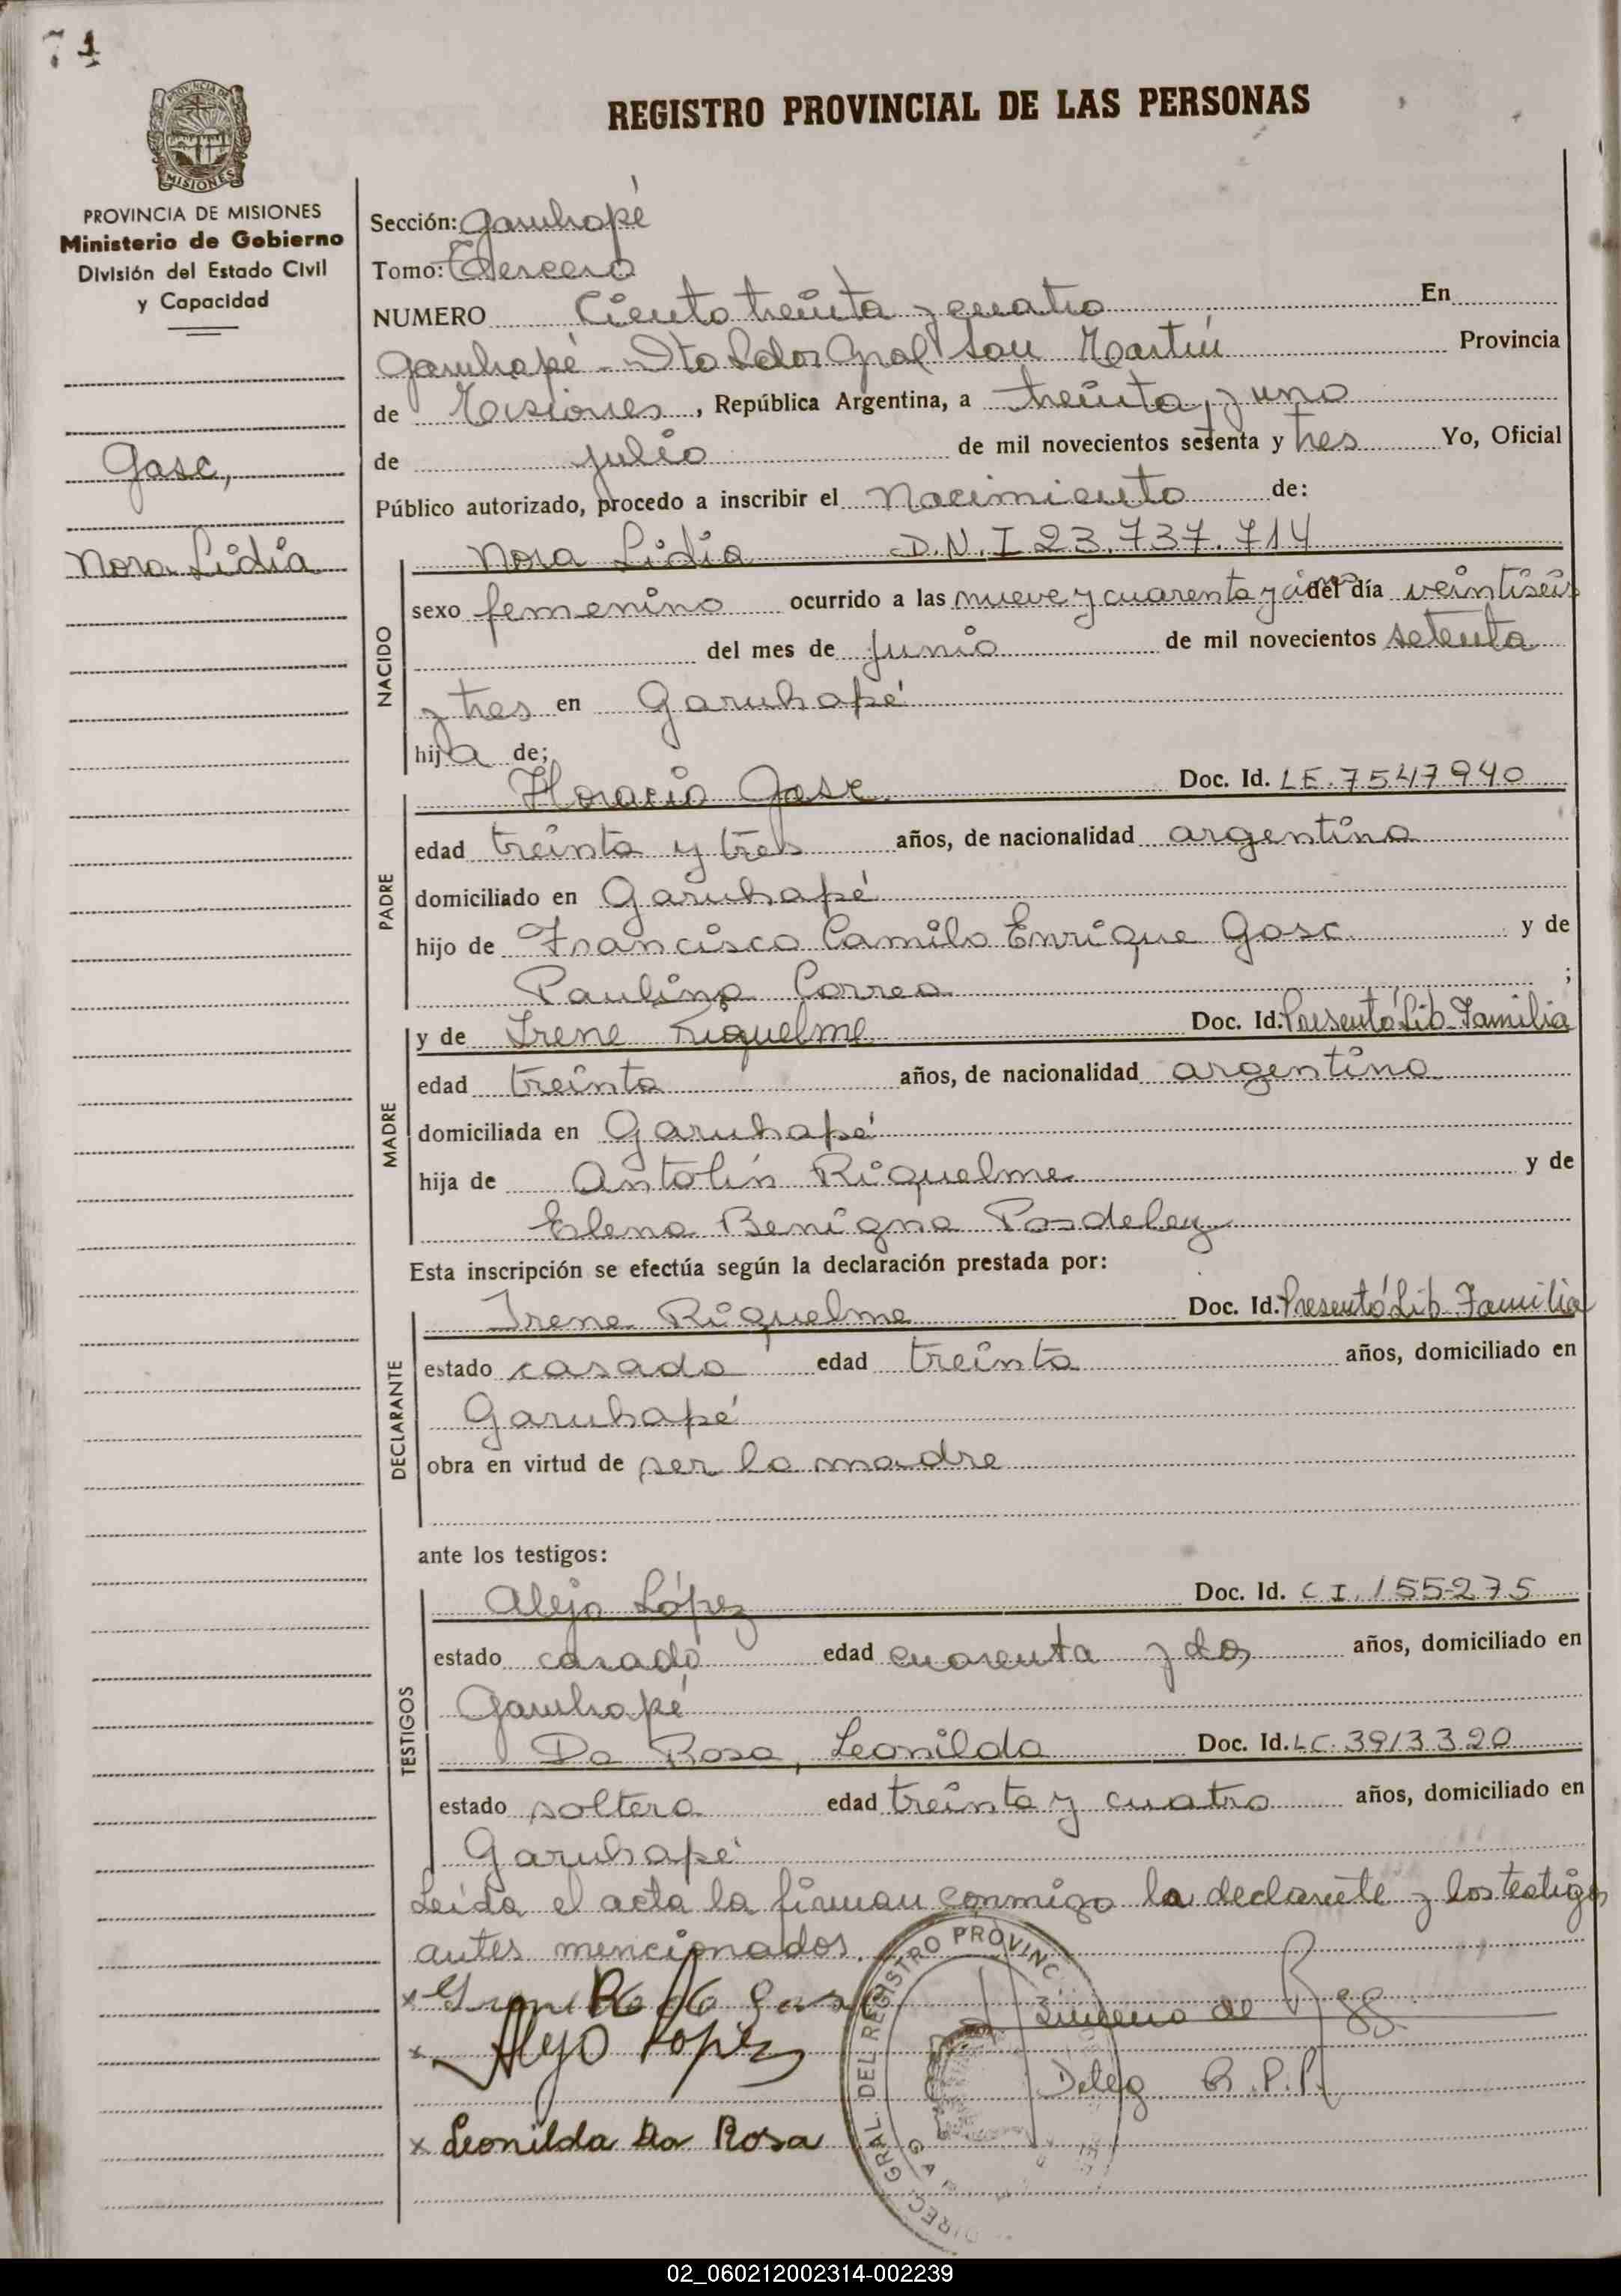 71
REGISTRO PROVINCIAL DE LAS PERSONAS
PROVINCIA DE MISIONES
MISIONES
PROVINCIA DE MISIONES
Ministerio de Gobierno
División del Estado Civil
y Capacidad
Gasc,
Nora Lidia
Sección: Garuhapé
Tomo: Tercero
NUMERO Ciento treinta y cuatro En
Garuhapé - Dto Ldor Gral San Martín Provincia
de Misiones, República Argentina, a treinta y uno
de julio de mil novecientos setenta y tres Yo, Oficial
Público autorizado, procedo a inscribir el Nacimiento de:
NACIDO
Nora Lidia D.N.I 23.737.714
sexo femenino ocurrido a las nueve y cuarenta y cinco del día veintiseis
del mes de Junio de mil novecientos setenta
y tres en Garuhapé
hija de;
PADRE
Horacio Gasc Doc. Id. LE. 7547940
edad treinta y tres años, de nacionalidad argentina
domiciliado en Garuhapé
hijo de Francisco Camilo Enrique Gasc y de
Paulina Correa ;
MADRE
y de Irene Riquelme Doc. Id. Presentó Lib. Familia
edad treinta años, de nacionalidad argentina
domiciliada en Garuhapé
hija de Antolín Riquelme y de
Elena Benigna Posdeley
Esta inscripción se efectúa según la declaración prestada por:
DECLARANTE
Irene Riquelme Doc. Id. Presentó Lib. Familia
estado casada edad treinta años, domiciliado en
Garuhapé
obra en virtud de ser la madre
ante los testigos:
TESTIGOS
Alejo López Doc. Id. C I. 155275
estado casado edad cuarenta y dos años, domiciliado en
Garuhapé
Da Rosa, Leonilda Doc. Id. LC. 3913320
estado soltera edad treinta y cuatro años, domiciliado en
Garuhapé
Leída el acta la firman conmigo la declarante y los testigos
antes mencionados.
x Irene R de Gasc
x Alejo Lopez
Deleg R.P.P.
x Leonilda Da Rosa
DIREC. GRAL. DEL REGISTRO PROVINC
02_060212002314-002239